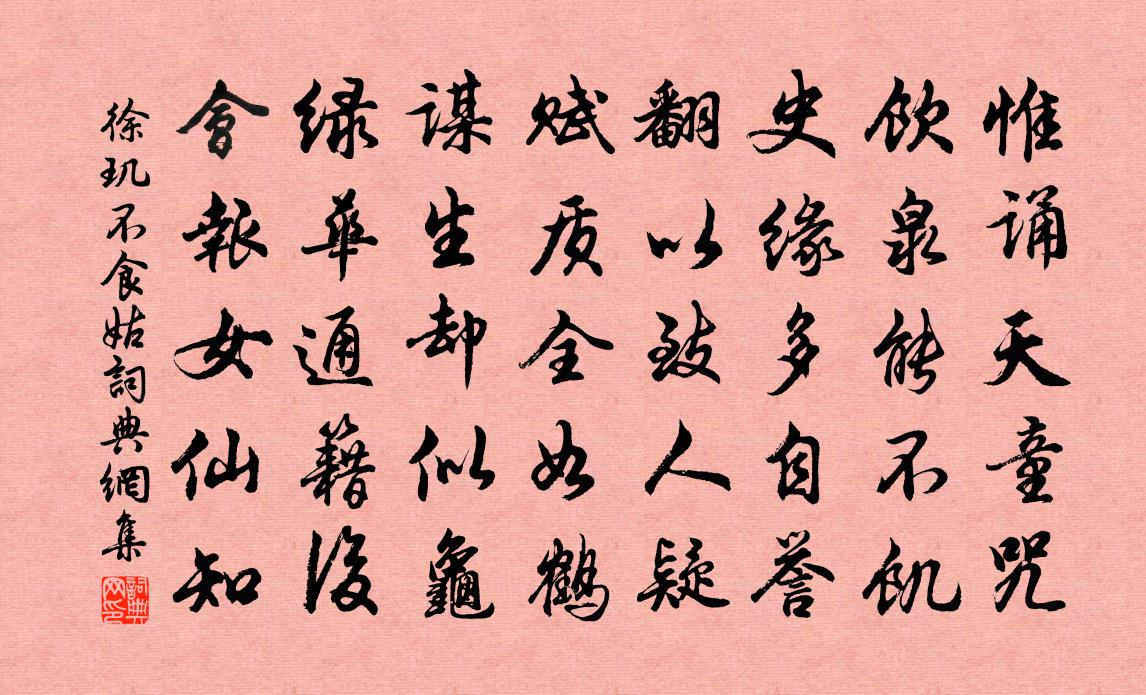 惟诵天童咒
饮泉能不饥
史缘多自誉
翻以致人疑
赋质全如鹤
谋生却似龜
绿华通籍後
會報女仙知
徐玑不食姑詞典網集
詞典网印